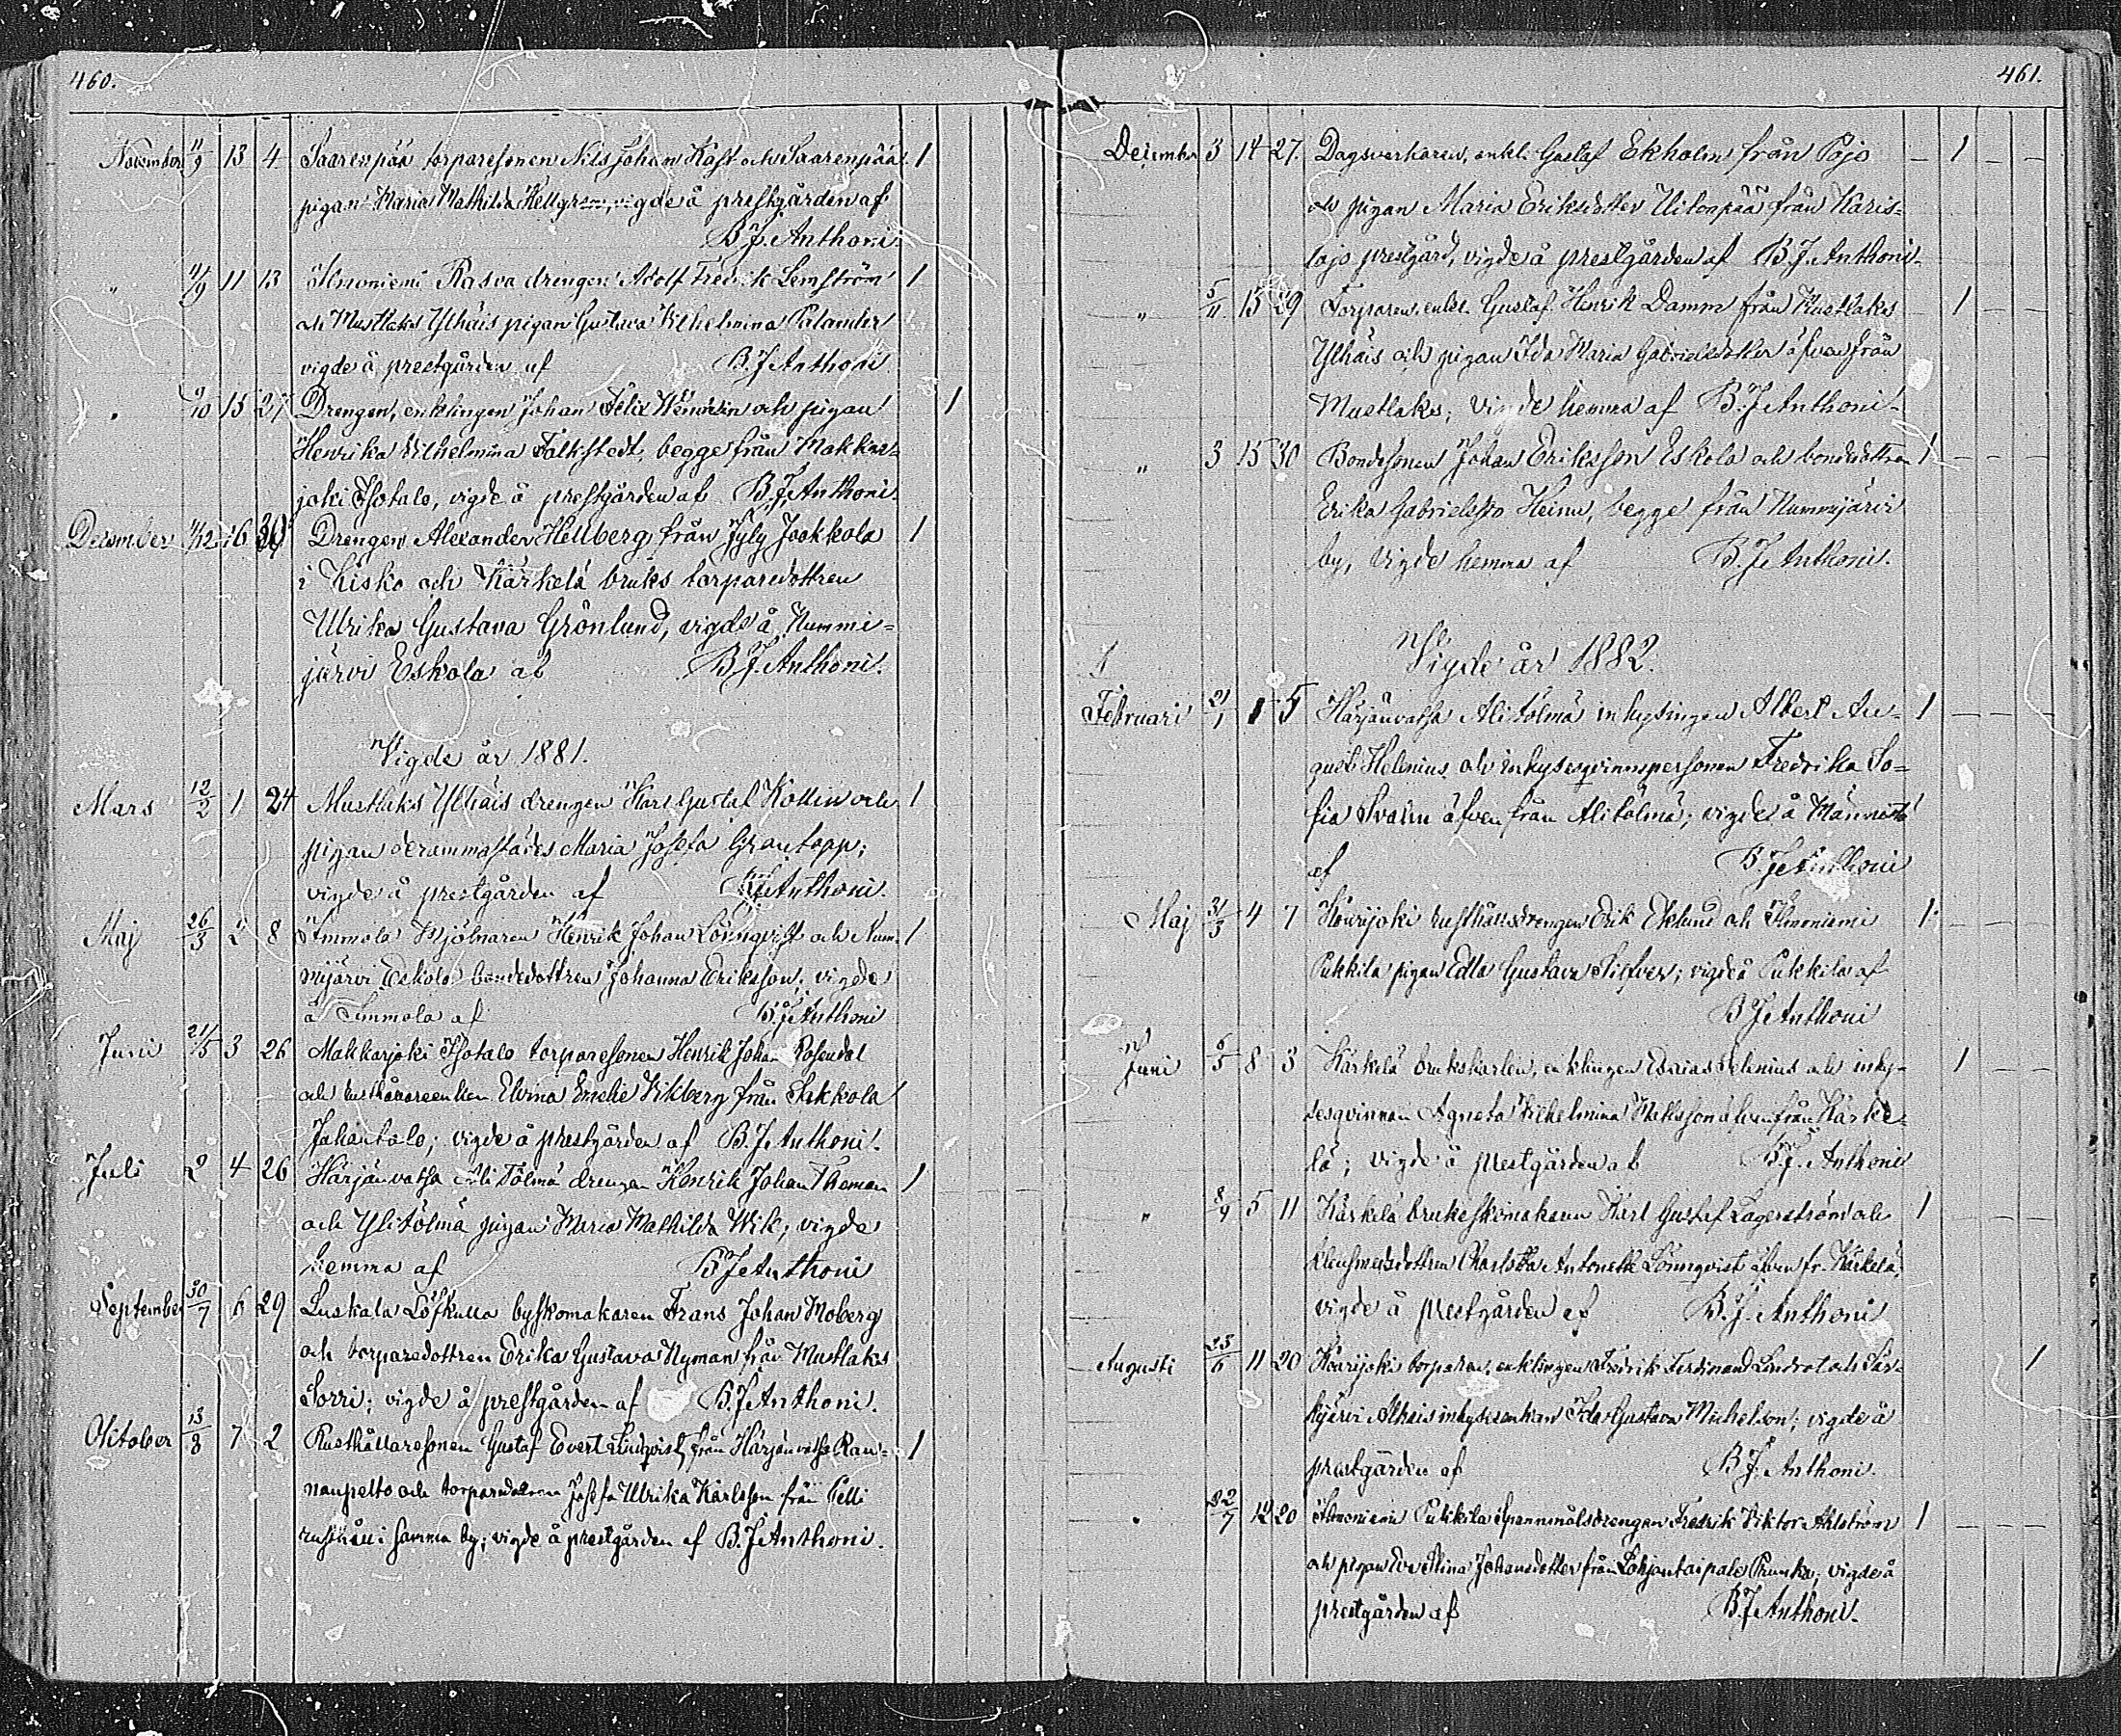 460.
November 11/9 13 4 Saarenpää torparesonen Nils Johan Kast och Saarenpää 1
pigan Maria Mathilda Hellgren, vigde å prestgården af
B.J. Anthoni.
" 11/9 11 13 Ilmoniemi Rasva drengen Adolf Fredrik Lemström 1
och Mustlaks Ylhäis pigan Gustava Vilhelmina Palander
vigde å prestgården af B.J. Anthoni
" 9/10 15 27 Drengen, enklingen Johan Felix och pigan 1
Henrika Vilhelmina Falkstedt, begge från Makkar-
joki Isotalo, vigde å prestgården af B.J. Anthoni.
December 11/12 16 30 Drengen Alexander Hellberg från Jyly Jookkola 1
i Kisko och Kärkelä bruks torparedottren
Ulrika Gustava Grönlund, vigde å Nummi-
järvi Eskola af B.J. Anthoni.
Vigde år 1881.
Mars 12/2 1 24 Mustlaks Ylhäis drengen Karl Gustaf Kollin och 1
pigan derammastädes Maria Josefa Grantopp;
vigde å prestgården af B.J. Anthoni.
Maj 26/3 2 8 Ämmola Mjölnaren Henrik Johan Lönnqvist och Num- 1
mijärvi Eskola bondedottren Johanna Eriksson; vigde
å Ämmola af B.J. Anthoni
Juni 21/5 3 26 Makkarjoki Isotalo torparesonen Henrik Johan Rosendal
och Elvina Emelie Vikberg från Sakkola 1
Juhantalo; vigde å prestgården af B.J. Anthoni.
Juli 2 4 26 Härjänvatsa Ali Tölmä drengen Henrik Johan Theman 1
och Yli Tölmä pigan Maria Mathilda Wik; vigde
hemma af B.J. Anthoni
September 30/7 6 29 Luskala Löfkulla byskomakaren Frans Johan Moberg
och torparedottren Erika Gustava Nyman från Mustlaks
Sorri; vigde å prestgården af B.J. Anthoni.
October 13/8 7 2 Rusthållaresonen Gustaf Evert Lindqvist från Härjänvatsa Ran- 1
nanpelto och torparedottren Josefa Ulrika Karlsson från Pelli
rusthåll i samma by; vigde å prestgården af B.J. Anthoni.
461.
December 3 14 27. Dagsverkaren, enkl. Gustaf Ekholm från Pojo 1
och pigan Maria Eriksdotter Uitonpää från Karis-
lojo prestgård, vigde å prestgården af B.J. Anthoni.
" 5/11 15 29 Torparen, enkl. Gustaf Henrik Damm från Mustlaks 1
Ylhäis och pigan Ida Maria Gabrielsdotter äfven från
Mustlaks; vigde hemma af B.J. Anthoni.
" 3 15 30 Bondesonen Johan Eriksson Eskola och bondedottren 1
Erika Gabrielsson Heimo, begge från Nummijärvi
by, vigde hemma af B.J. Anthoni.
Vigde år 1882.
Februari 21/1 1 5 Härjänvatsa Ali Tölmä inhysingen Albert Au- 1
gust Helenius och inhysesqvinnspersonen Fredrika So-
fia Svahn äfven från Ali tölmä; vigde å Männistö
af B.J. Anthoni
Maj 31/3 4 7 rusthållsdrengen Erik Eklund och Ilmoniemi 1
Pukkila pigan Edla Gustava Silfver; vigde å Pukkila af
B.J. Anthoni
Juni 6/5 8 3 Kärkelä brukskarlen, enklingen Esaias Selenius och inhy- 1
sesqvinnan Agneta Vilhelmina Mattsson äfven från Kärke-
lä; vigde å prestgården af B.J. Anthoni
" 8/4 5 11 Kärkelä bruksskomakaren Karl Gustaf Lagerström och 1
klensmedsdottren Charlotta Antonette Lönnqvist äfven fr. Kärkelä;
vigde å prestgården af B.J. Anthoni
Augusti 25/6 11 20 torparen, enklingen Fredrik Ferdinand Lindroth och Sär- 1
kijärvi Alhais inhysesenkan Ida Gustava Michelson; vigde å
prestgården af B.J. Anthoni.
" 22/7 12 20 Ilmoniemi Pukkila Spannmålsdrengen Fredrik Viktor Ahlström 1
och pigan Eva Stina Johansdotter från Lohjantaipale Prunku; vigde å
prestgården af B.J. Anthoni.